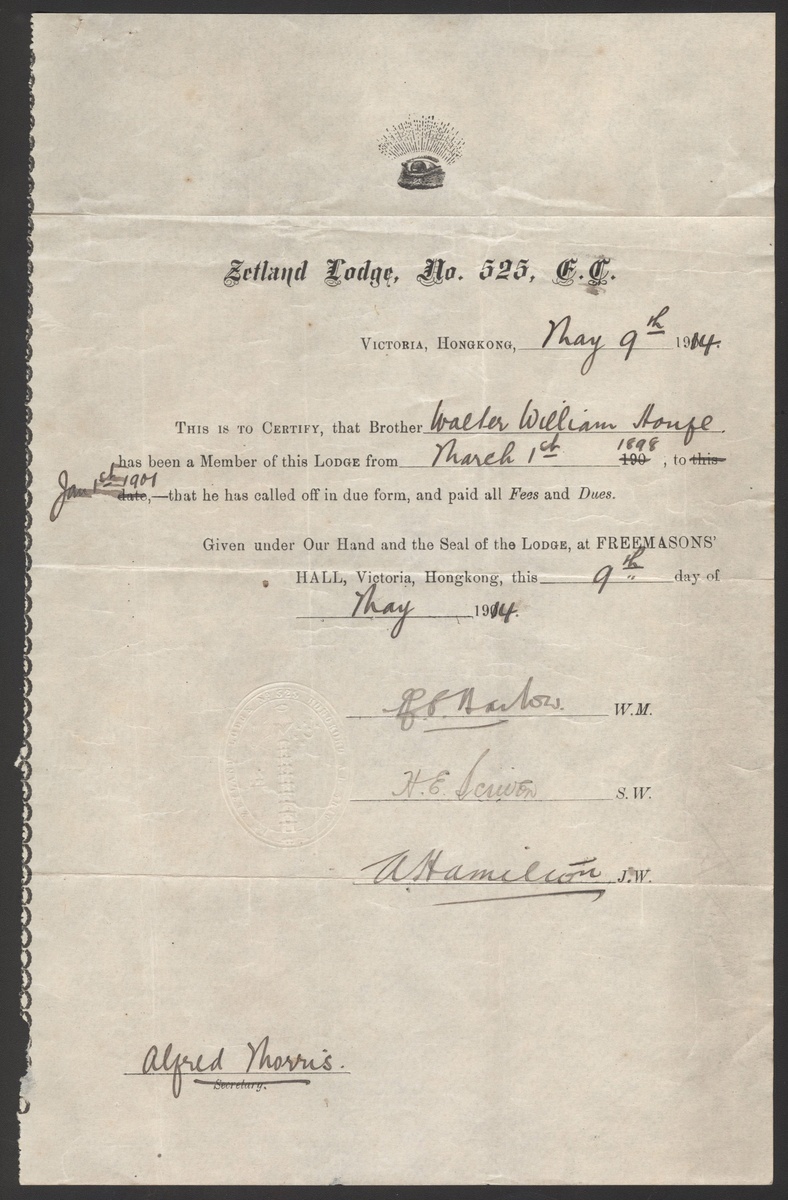 Zetland Lodge, No. 525, E.C.
Victoria, Hongkong, May 9th 1914.
This is to Certify, that Brother Walter William
has been a Member of this Lodge from March 1st 1898 190 , to this
Jan 1st 1901
date,—that he has called off in due form, and paid all Fees and Dues.
Given under Our Hand and the Seal of the Lodge, at FREEMASONS'
HALL, Victoria, Hongkong, this 9th day of
May 1914.
Barlow. W.M.
H.E. Scriven S.W.
A Hamilton J.W.
Alfred Morris.
Secretary.